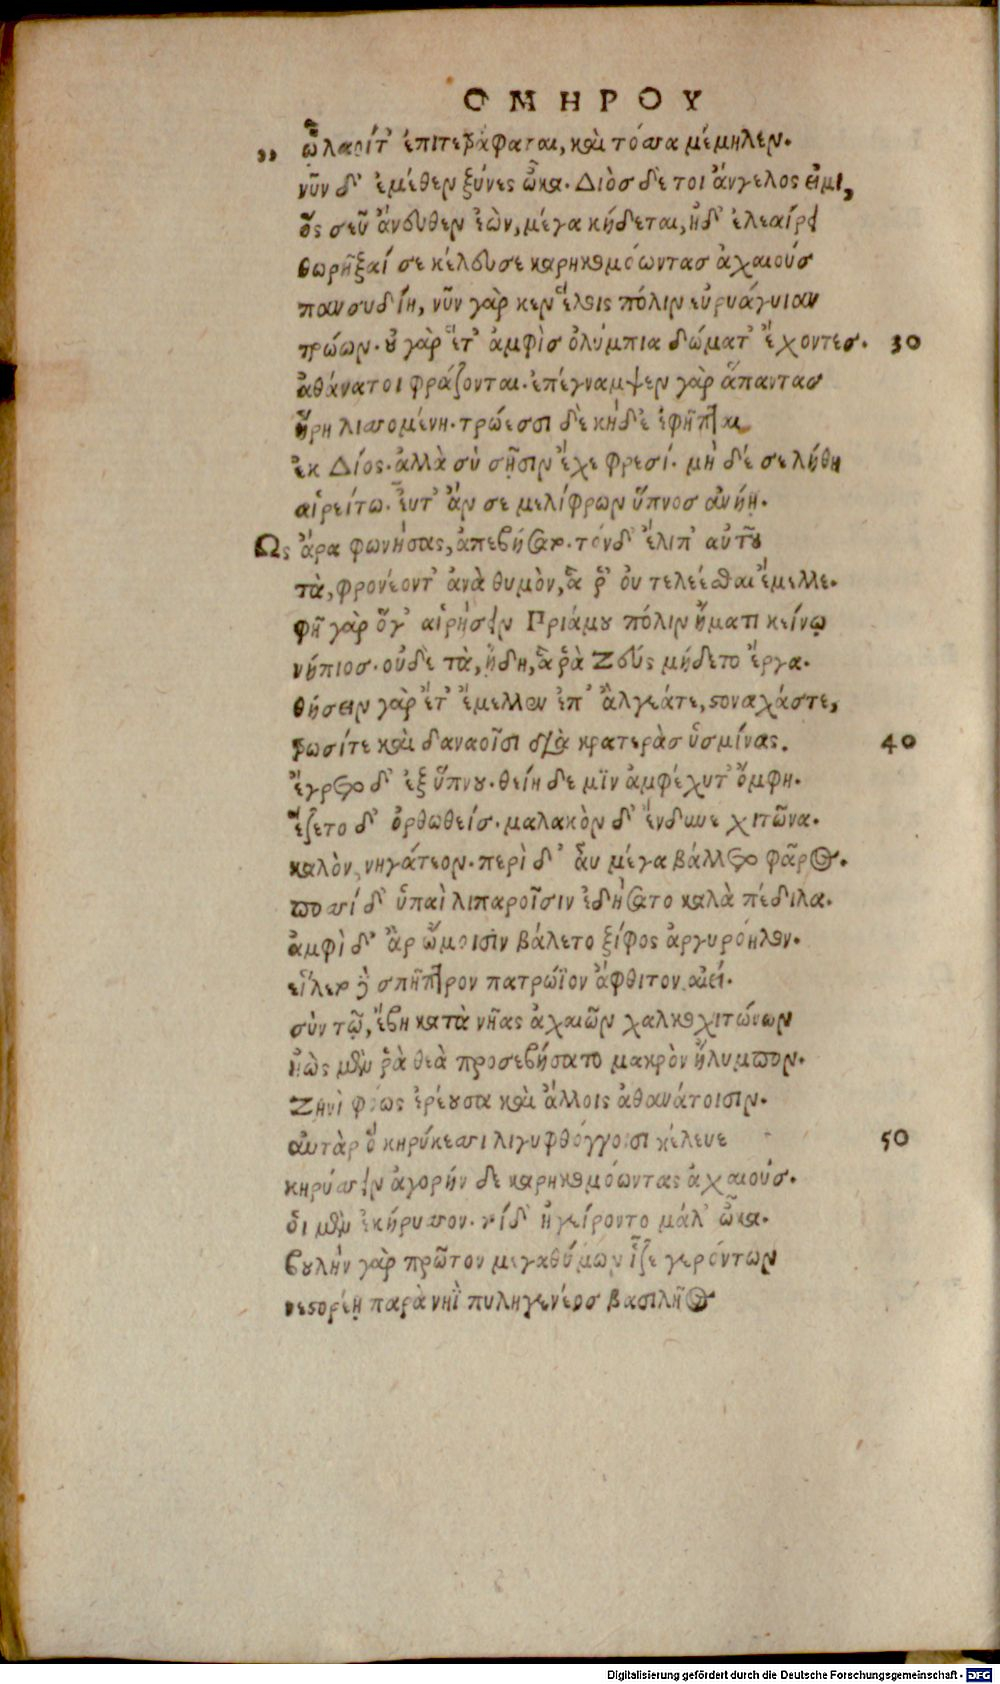 ΟΜΗΡΟΥ
,, ᾧ λαοίτ' ἐπιτετράφαται, καὶ τόσσα μέμηλεν.
νῦν δ' ἐμέθεν ξύνες ὦκα. Διὸς δέ τοι ἄγγελος εἰμι,
ὃς σεῦ ἄνευθεν ἐὼν, μέγα κήδεται, ἠδ' ἐλεαίρει
θωρῆξαί σε κέλευσε καρηκομόωντας ἀχαιούς
πανσυδίη, νῦν γὰρ κεν ἕλοις πόλιν εὐρυάγυιαν
τρώων. οὐ γὰρ ἔτ' ἀμφὶς ὀλύμπια δώματ' ἔχοντες. 30
ἀθάνατοι φράζονται. ἐπέγναμψεν γὰρ ἅπαντας
ἥρη λισσομένη. τρώεσσι δὲ κήδε' ἐφῆπται
ἐκ Διός. ἀλλὰ σὺ σῇσιν ἔχε φρεσί. μὴ δέ σε λήθη
αἱρείτω. εὖτ' ἄν σε μελίφρων ὕπνος ἀνήῃ.
Ως ἄρα φωνήσας, ἀπεβήσατο. τόνδ' ἔλιπ' αὐτοῦ
τὰ, φρονέοντ' ἀνὰ θυμὸν, ἅ ῥ' οὐ τελέεσθαι ἔμελλε.
φῆ γὰρ ὅγ' αἱρήσειν Πριάμου πόλιν ἤματι κείνῳ
νήπιος. οὐδὲ τὰ, ᾔδη, ἅ ῥὰ Ζεύς μήδετο ἔργα.
θήσειν γὰρ ἔτ' ἔμελλεν ἐπ' ἄλγεάτε, στοναχάστε,
τρωσίτε καὶ δαναοῖσι διὰ κρατερὰς ὑσμίνας. 40
ἔγρετο δ' ἐξ ὕπνου. θείη δέ μιν ἀμφέχυτ' ὄμφη.
ἕζετο δ' ὀρθωθείς. μαλακὸν δ' ἔνδυνε χιτῶνα.
καλὸν, νηγάτεον. περὶ δ' αὖ μέγα βάλλετο φᾶρος.
ποσσί δ' ὑπαὶ λιπαροῖσιν ἐδήσατο καλὰ πέδιλα.
ἀμφὶ δ' ἂρ ὤμοισιν βάλετο ξίφος ἀργυρόηλον.
εἵλετο δὲ σκῆπτρον πατρώϊον ἄφθιτον αἰεί.
σὺν τῷ, ἔβη κατὰ νῆας ἀχαιῶν χαλκοχιτώνων
ἠὼς μέν ῥὰ θεὰ προσεβήσατο μακρὸν ὄλυμπον.
Ζηνὶ φόως ἐρέουσα καὶ ἄλλοις ἀθανάτοισιν.
αὐτὰρ ὃ κηρύκεσσι λιγυφθόγγοισι κέλευε 50
κηρύσσειν ἀγορήν δε καρηκομόωντας ἀχαιούς.
ὁι μὲν ἐκήρυσσον. τοίδ' ἠγείροντο μάλ' ὦκα.
βουλὴν γὰρ πρῶτον μεγαθύμων ἷζε γερόντων
νεστορέῃ παρὰ νηῒ πυληγενέος βασιλῆος
Digitalisierung gefördert durch die Deutsche Forschungsgemeinschaft - DFG